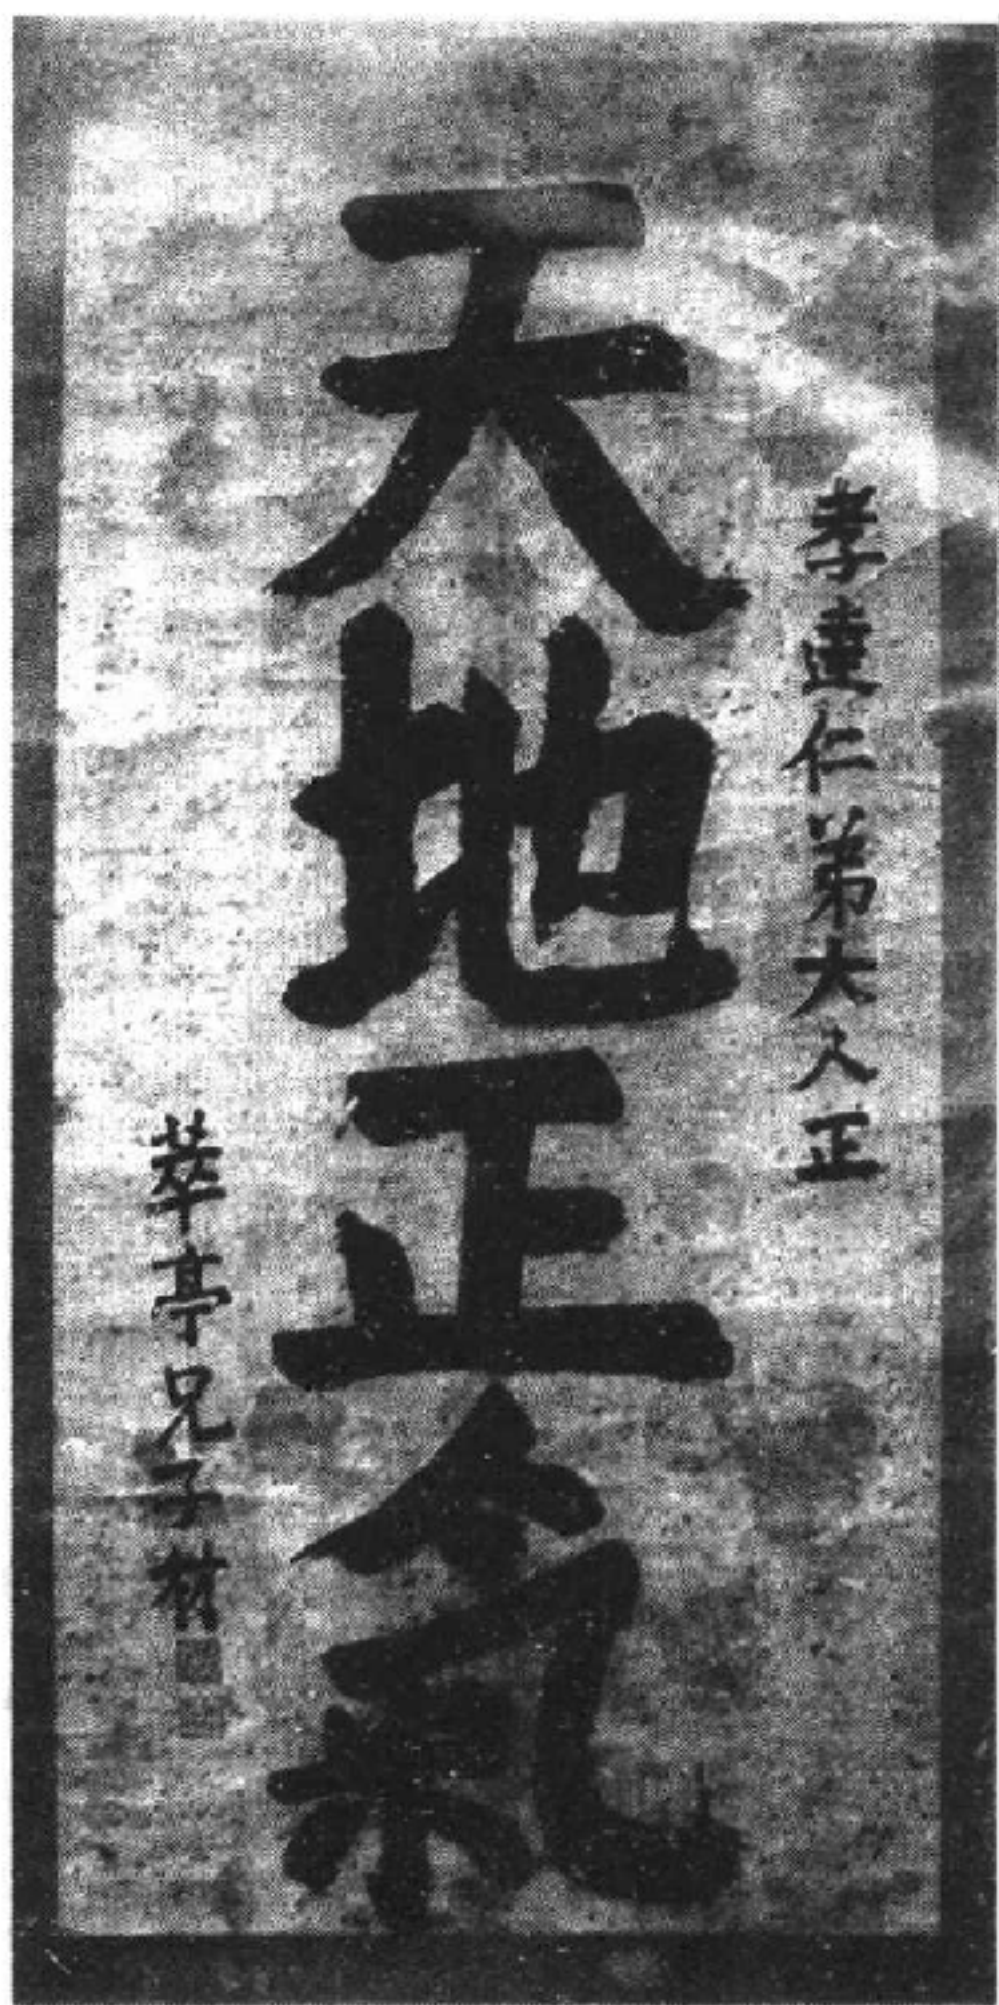 孝達仁弟大人正
天地正氣
萃亭兄子